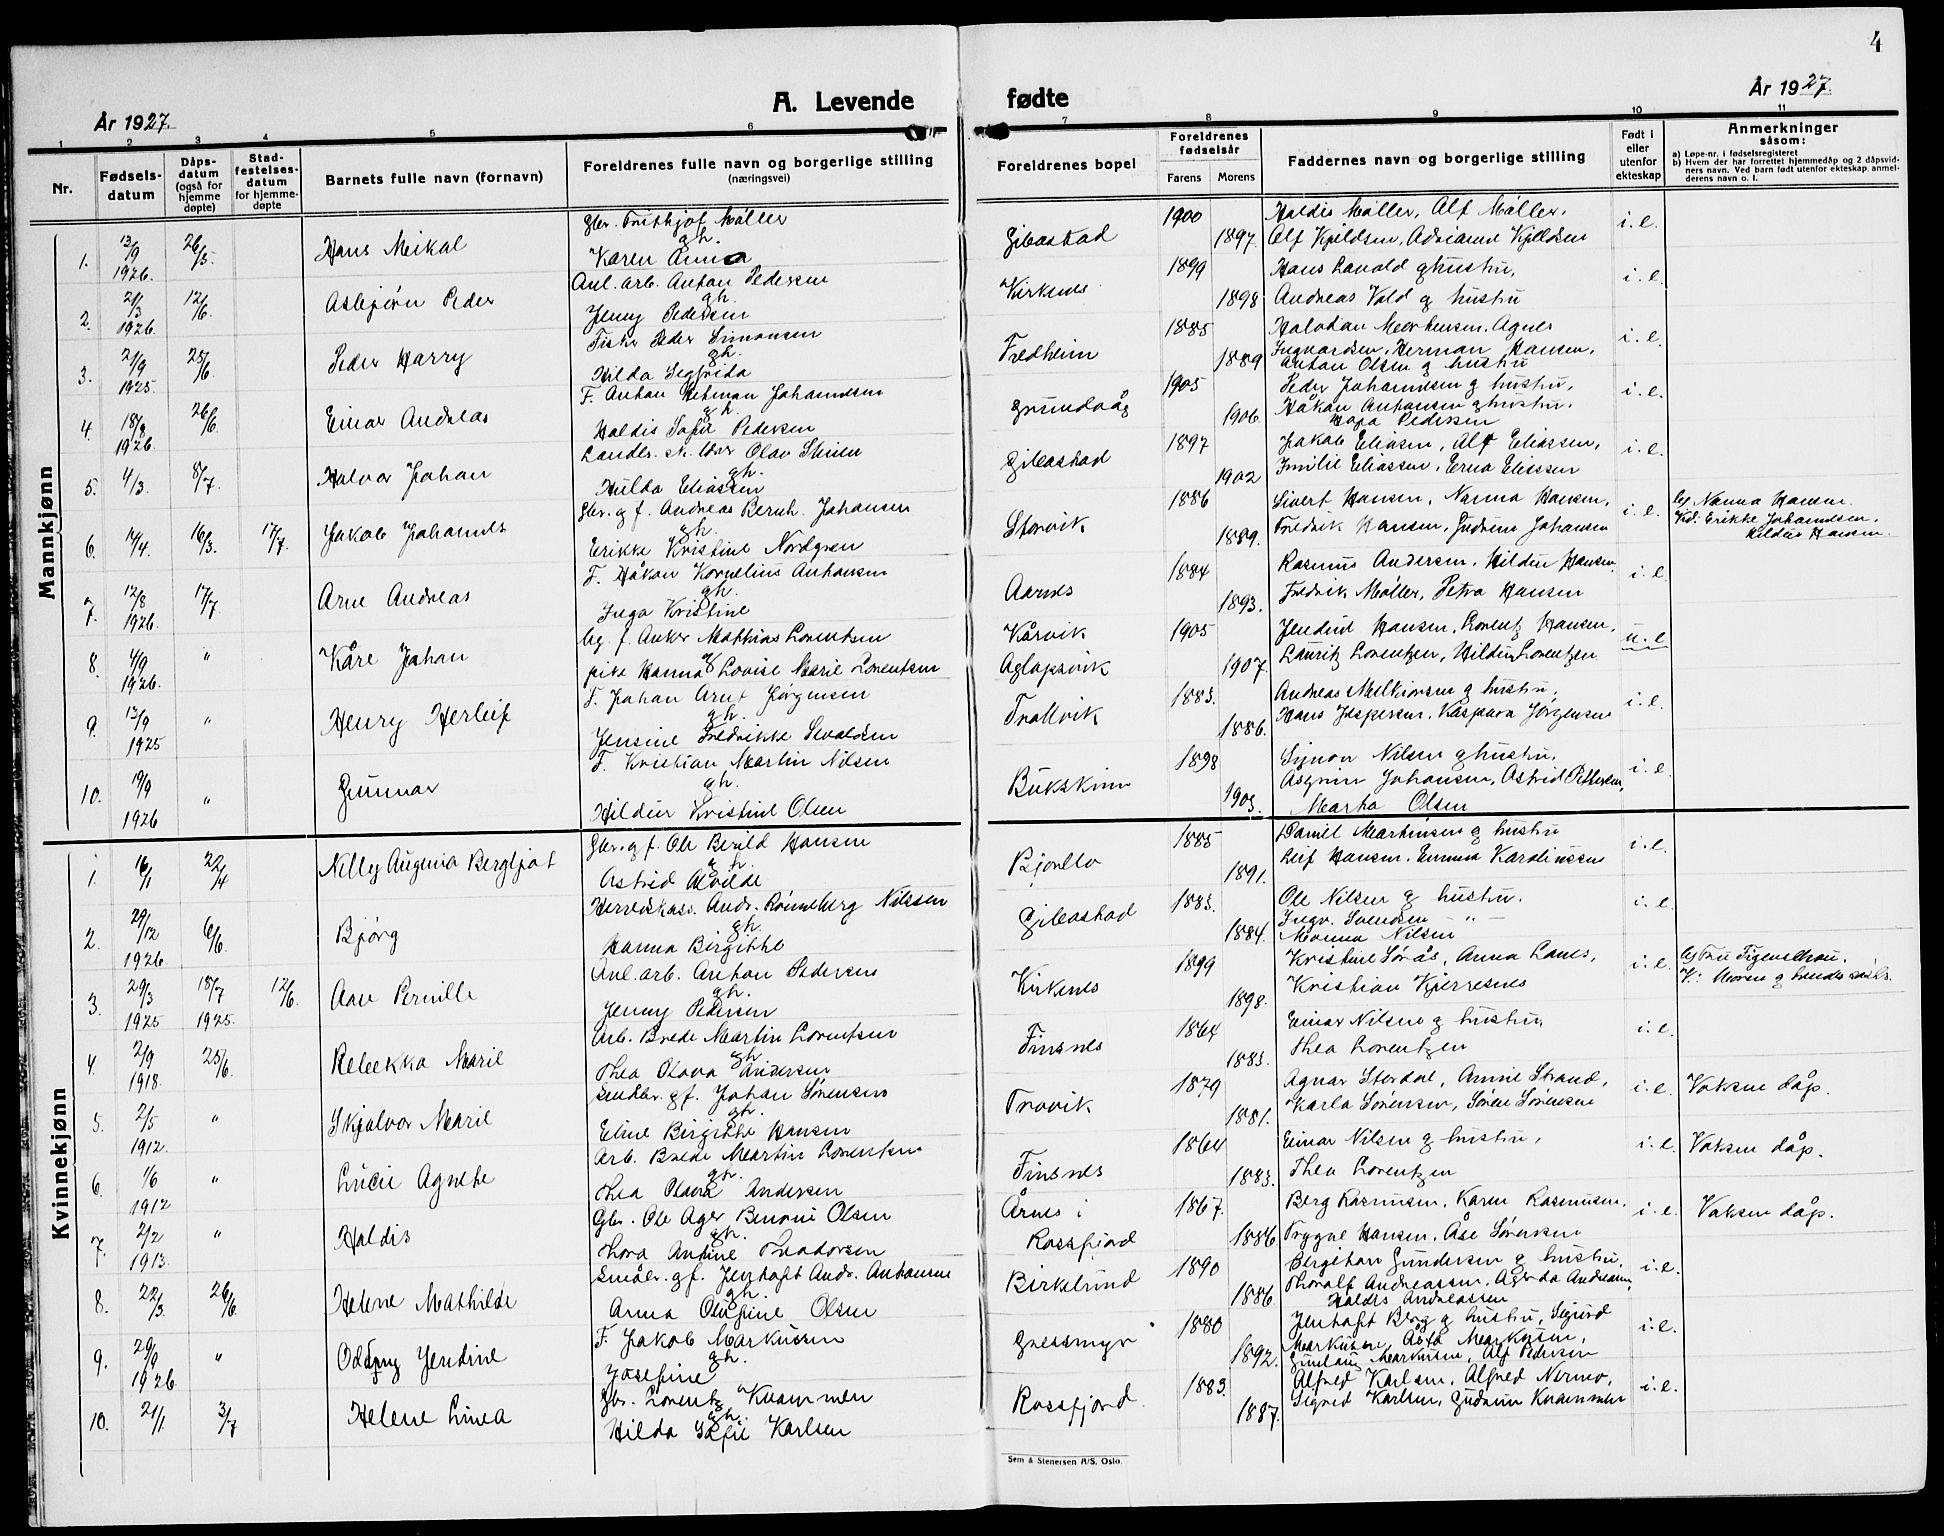 4
A. Levende fødte
År 1927.
År 1927.
1 2 3 4 5 6 7 8 9 10 11
Nr.
Fødsels-datum
Dåps-datum (også for hjemme døpte)
Stad-festelses-datum for hjemme-døpte
Barnets fulle navn (fornavn)
Foreldrenes fulle navn og borgerlige stilling (næringsvei)
Foreldrenes bopel
Foreldrenes fødselsår
Farens Morens
Faddernes navn og borgerlige stilling
Født i eller utenfor ekteskap
Anmerkninger såsom:
a) Løpe-nr. i fødselsregisteret
b) Hvem der har forrettet hjemmedåp og 2 dåpsvidners navn. Ved barn født utenfor ekteskap anmelderens navn o. l.
Mannkjønn
1. 13/9 1926. 26/5. Hans Meikal
Gbr. Frithjof Møller
gh.
Karen Anna
Gibostad 1900 1897.
Haldis Møller, Alf Møller,
Alf Kjeldsen, Adrianna Kjeldsen
i.e.
2. 21/3 1926. 12/6. Asbjørn Peder
Anl. arb. Anton Pedersen
gh.
Jenny Pedersen
Kirkenes 1899 1898
Hans Lanald g hustru,
Andreas Vold g hustru
i.e.
3. 21/9 1925 25/6. Peder Harry
Fisker Peder Simonsen
gh.
Hilda Segfrida
Fredheim 1885 1889
Halvdan Mortensen, Agnes
Ingvardsen, Herman Hansen,
Anton Olsen g hustru
i.e.
4. 18/8 1926. 26/6. Einar Andreas
F. Anton Hetman Johannesen
gh.
Haldis Sofie Pedersen
Grundvåg 1905 1906
Peder Johannesen g hustru,
Håkan Antonsen g hustru.
Hapa Pedersen
i.e.
5. 4/3. 8/7. Halvor Johan
Landbr. sk. lærer Olav Steien
gh.
Hulda Eliassen
Gibostad 1897 1902
Jakob Eliasen, Alf Eliassen,
Emilie Eliassen, Erna Eliassen
i.e.
6. 14/4. 16/3. 17/7. Jakob Johannes
Gbr. g f. Andreas Bernh. Johansen
gh.
Erikke Kristine Nordgren
Storvik 1886 1889.
Sivert Hansen, Nanna Hansen,
Fredrik Hansen, Gudrun Johansen
i.e.
b) Nanna Hansen.
Vid: Erikke Johannesen,
Hildur Hansen.
7. 12/8 1926. 17/7. Arne Andreas
F. Håkon Kornelius Antonsen
gh.
Inga Kristine
Aarnes 1884 1893.
Rasmus Andersen, Hildur Hansen,
Fredrik Møller, Petra Hansen
i.e.
8. 4/9 1926. " Kåre Johan
Ug. f. Anker Mathias Lorentsen
g
pike Hanna Lovise Marie Lorentsen
Kårvik
Aglapsvik
1905 1907.
Jendine Hansen, Lorentz Hansen,
Lauritz Lorentzen, Hildur Lorentzen
u.e
9. 13/9 1925 " Henry Herleif
F. Johan Arnt Jørgensen
gh.
Jensine Fredrikke Sivaldsen
Trollvik 1883. 1886.
Andreas Melkiorsen g hustru,
Hans Jespersen, Kaspara Jørgensen
i.e.
10. 19/9 1926 " Gunnar
F. Kristian Martin Nilsen
gh.
Hildur Kristine Olsen
Bukskinn 1898 1903.
Signor Nilsen g hustru,
Asgrim Johansen, Astrid Pettersen,
Marta Olsen
i.e.
Kvinnekjønn
1. 16/1 22/4 Nelly Augenia Bergljot
Gbr. g f. Ole Berild Hansen
gh.
Astrid Alvilde
Bjorelv 1885 1891.
Daniel Martinsen g hustru
Leif Hansen, Emma Karolinssen
i.e.
2. 29/12 1926. 6/6. Bjørg
Herredskass. Andr. Rønneberg Nilssen
gh.
Hanna Birgitte
Gibostad 1883. 1884.
Ole Nilsen g hustru,
Ingv. Svendsen — " —
Monna Nilsen
i.e.
3. 29/3 1925 18/7 1925. 12/6. Aase Pernille
Anl. arb. Anton Pedersen
gh.
Jenny Pedersen
Kirkenes 1899 1898.
Kristine Sørås, Anna Lanes,
Kristian Kjerresnes
i.e.
b) Fru Tigenschou.
V: Moren g hendes
4. 2/9 1918. 25/6. Rebekka Marie
Arb. Brede Martin Lorentsen
gh.
Thea Olava Andersen
Finsnes 1864 1883.
Einar Nilsen g hustru,
Thea Lorentzen
i.e.
5. 2/5 1912. " Skjalvor Marie
Småbr. g f. Johan Sørensen
gh.
Eline Birgitte Hansen
Trovik 1879 1881.
Agnar Stordal, Annie Strand,
Karla Sørensen, Søren Sørensen
i.e. Voksen dåp.
6. 1/6 1912 " Lucie Agnete
Arb. Brede Martin Lorentsen
gh.
Thea Olava Andersen
Finsnes 1864 1883.
Einar Nilsen g hustru,
Thea Lorentzen
i.e. Voksen dåp.
7. 2/2 1913. " Haldis
Gbr. Ole Ager Benoni Olsen
gh.
Thora Antine Teodorsen
Årnes i
Rossfjord
1867. 1886
Berg Rasmusen, Karen Rasmusen,
Trygve Hansen, Åse Sørensen
i.e. Voksen dåp.
8. 22/3. 26/6. Helene Mathilde
Småbr. g f. Jentoft Andr. Antonsen
gh.
Anna Olufine Olsen
Birkelund 1890 1886
Bergithon Gundersen g hustru,
Thoralf Andreassen, Agerda Andreassen,
Haldis Andreassen
i.e.
9. 29/9 1926 " Oddny Jendine
F. Jakob Markussen
gh.
Josefine
Gressmyr 1880 1892.
Jentoft Berg g hustru, Sigurd
Markusen, Asta Markusen,
Gunlaug Markusen, Alf Pedersen
i.e.
10. 21/1. 3/7 Helene Linea
Gbr. Lorentz Kvammen
gh.
Hilda Sofie Karlsen
Rossfjord 1883. 1887.
Alfred Karlsen, Alfred Nermo,
Sigred Karlsen, Gudrun Kvammen
i.e.
Sem & Stenersen A/S, Oslo.